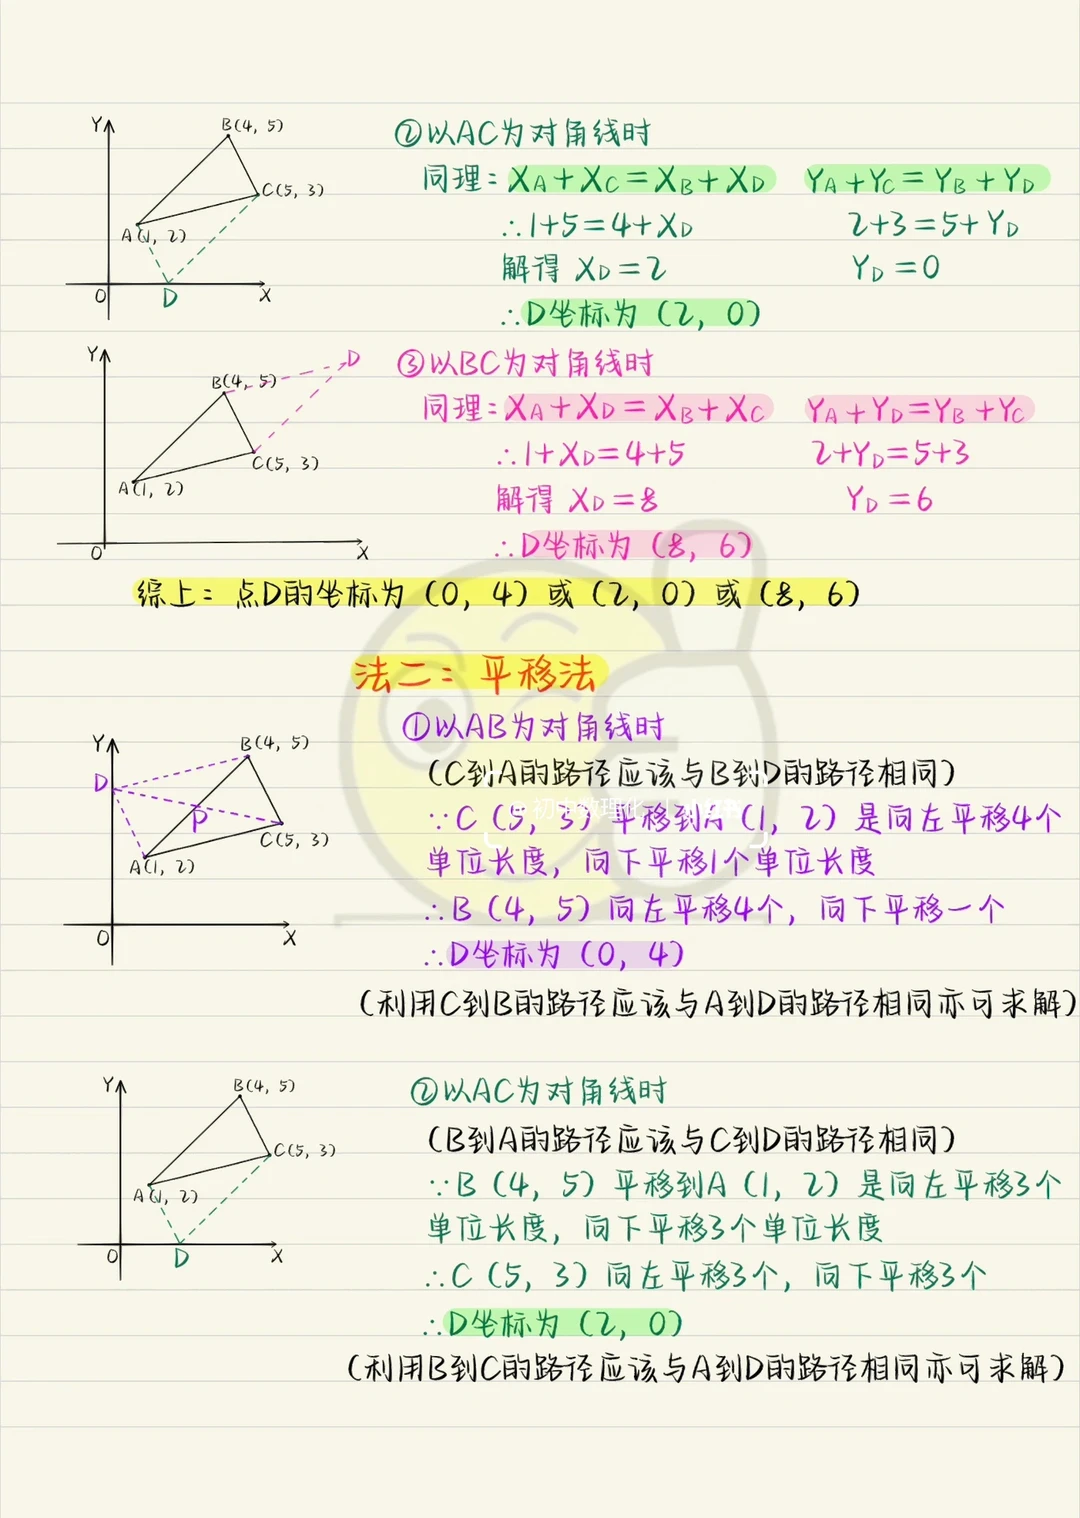 Y
B(4, 5)
C(5, 3)
A(1, 2)
O
D
X
②以AC为对角线时
同理：XA+XC=XB+XD YA+YC=YB+YD
∴1+5=4+XD 2+3=5+YD
解得 XD=2 YD=0
∴D坐标为（2, 0）
Y
D
B(4, 5)
C(5, 3)
A(1, 2)
O
X
③以BC为对角线时
同理：XA+XD=XB+XC YA+YD=YB+YC
∴1+XD=4+5 2+YD=5+3
解得 XD=8 YD=6
∴D坐标为（8, 6）
综上：点D的坐标为（0, 4）或（2, 0）或（8, 6）
法二：平移法
Y
B(4, 5)
D
P
C(5, 3)
A(1, 2)
O
X
①以AB为对角线时
（C到A的路径应该与B到D的路径相同）
∵C（5, 3）平移到A（1, 2）是向左平移4个
单位长度，向下平移1个单位长度
∴B（4, 5）向左平移4个，向下平移一个
∴D坐标为（0, 4）
（利用C到B的路径应该与A到D的路径相同亦可求解）
Y
B(4, 5)
C(5, 3)
A(1, 2)
O
D
X
②以AC为对角线时
（B到A的路径应该与C到D的路径相同）
∵B（4, 5）平移到A（1, 2）是向左平移3个
单位长度，向下平移3个单位长度
∴C（5, 3）向左平移3个，向下平移3个
∴D坐标为（2, 0）
（利用B到C的路径应该与A到D的路径相同亦可求解）